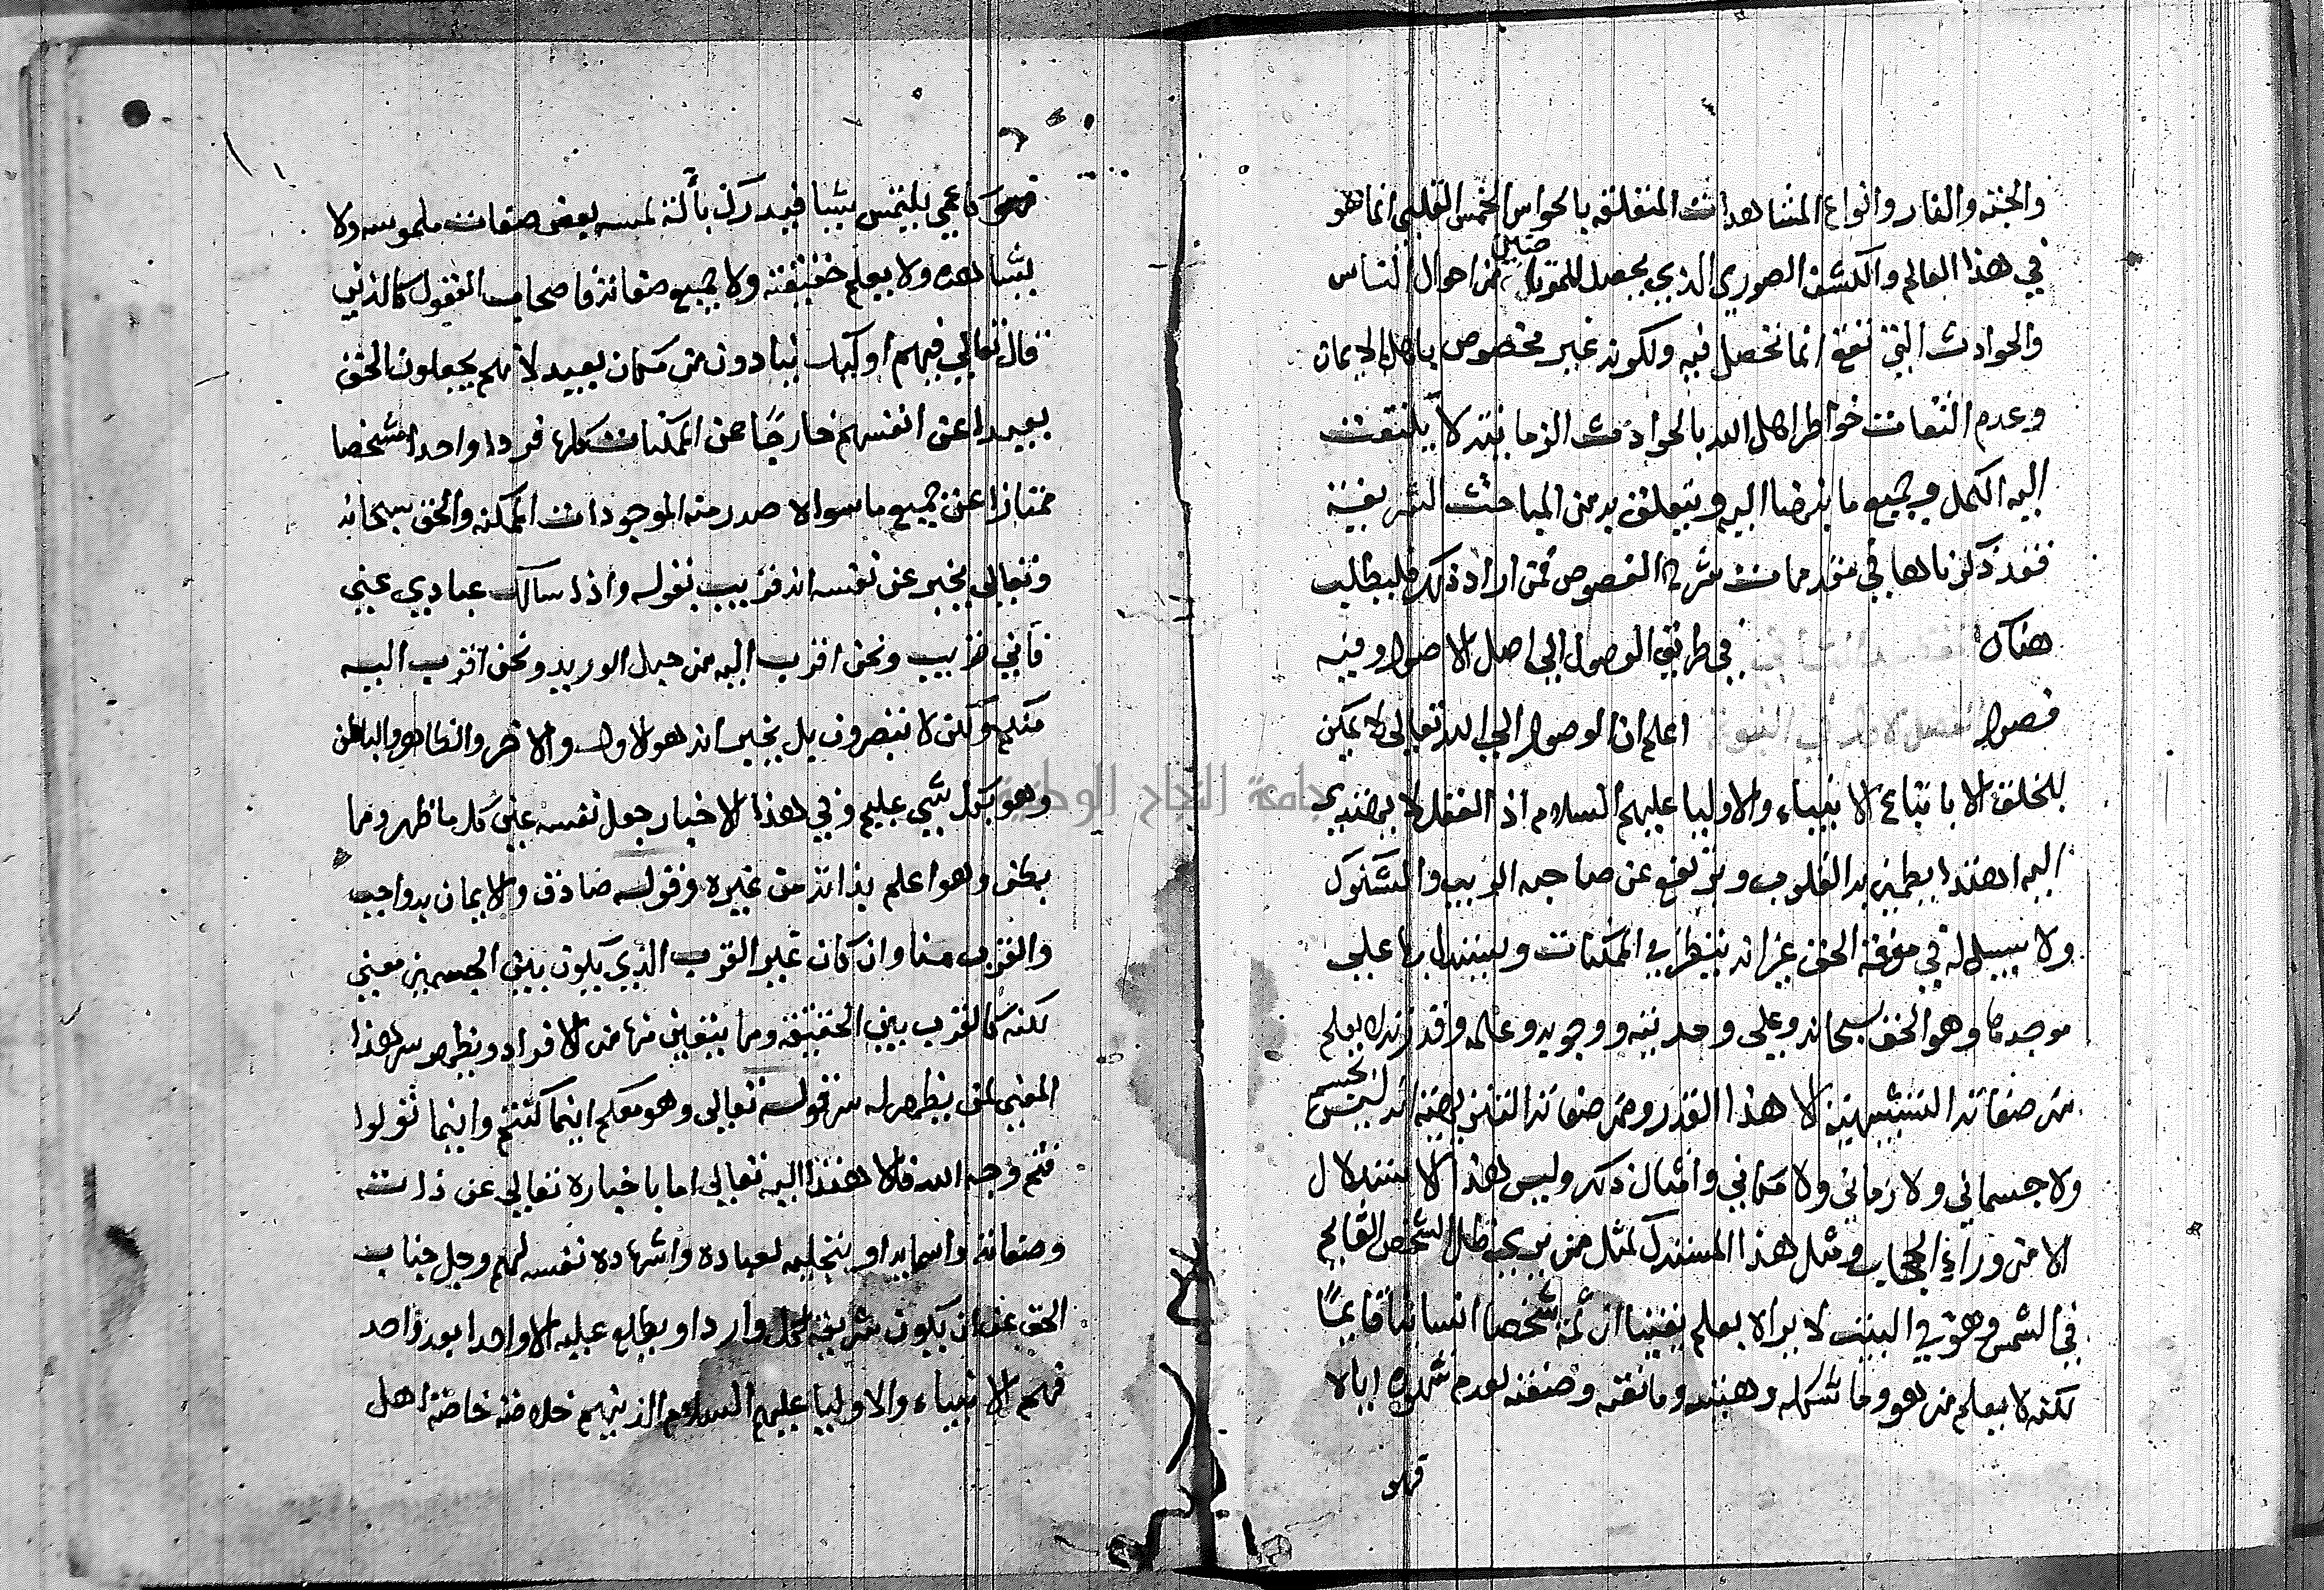 والجنة والنار وانواع المشاهدات المتعلقة بالحواس الخمس القلبي انما هو
في هذا العالم والكشف الصوري الذي يحصل للمتوسطين من احوال الناس
والحوادث التي تقع انما تحصل فيه ولكونه غير مخصوص باهل الايمان
وعدم التفات خواطر اهل الله بالحوادث الزمانية لا يلتفت
اليه الكمل وجميع ما يترضا اليه ويتعلق به من المباحث الشريفة
فقد ذكرناها في مقدمات شرح الفصوص فمن اراد ذلك فليطلب
هناك المقصد الثاني في طريق الوصول الي اصل الاصول وفيه
فصول الفصل الاول في النبوة اعلم ان الوصول الي الله تعالي لا يمكن
للخلق الا باتباع الانبياء والاوليا عليهم السلام اذ العقل لا يهتدي
اليه اهتداء يطمئن به القلوب ويرتفع عن صاحبه الريب والشكوك
ولا سبيل له في معرفة الحق غير انه ينظر في الممكنات ويستدل بها علي
موجدها وهو الحق سبحانه وعلي وحدته ووجوبه وعلمه وقدرته لا يعلم
من صفاته التشبيهية الا هذا القدر ومن صفاته التنزيهية انه ليس بجسم
ولا جسماني ولا زماني ولا مكاني وامثال ذلك وليس هذا الاستدلال
الا من وراء الحجاب ومثل هذا المستدل كمثل من يري ظل الشخص القايم
في الشمس وهو في البيت لا يراه يعلم يقينا ان ثمة شخصا انسانا قايما
لكنه لا يعلم من هو وما شكله وهيئته وما نعته وصفته لعدم شهوده اياه
فهو
فهو كاعمي يلتمس شيا فيدرك بآلة لمسه بعض صفات ملموسه ولا
يشاهده ولا يعلم حقيقته ولا جميع صفاته فاصحاب العقول كالذين
قال تعالي فيهم اوليك ينادون من مكان بعيد لانهم يجعلون الحق
بعيدا عن انفسهم خارجا عن الممكنات كلها فردا واحدا مشخصا
ممتازا عن جميع ما سواه صدر منه الموجودات الممكنه والحق سبحانه
وتعالي يخبر عن نفسه انه قريب بقوله واذا سالك عبادي عني
فاني قريب ونحن اقرب اليه من حبل الوريد ونحن اقرب اليه
منكم ولكن لا تبصرون بل يخبر انه هو الاول والاخر والظاهر والباطن
وهو بكل شي عليم وفي هذا الاخبار جعل نفسه عين كل ما ظهر وما
بطن وهو اعلم بذاته من غيره وقوله صادق والايمان به واجب
والقرب منا وان كان غير القرب الذي يكون بين الجسمين معني
لكنه كالقرب بين الحقيقة وما يتعين منها من الافراد ويظهر سر هذا
المعني لمن يظهر له سر قوله تعالي وهو معكم اينما كنتم واينما تولوا
فثم وجه الله فالاهتداء اليه تعالي اما باخباره تعالي عن ذاته
وصفاته واسمايه او بتجليه لعباده واشهاده نفسه لهم وجل جناب
الحق عن ان يكون شريعة لكل وارد او يطلع عليه الا واحدا بعد واحد
فهم الانبياء والاوليا عليهم السلام الذينهم خلاصة خاصة اهل
جامعة النجاح الوطنية